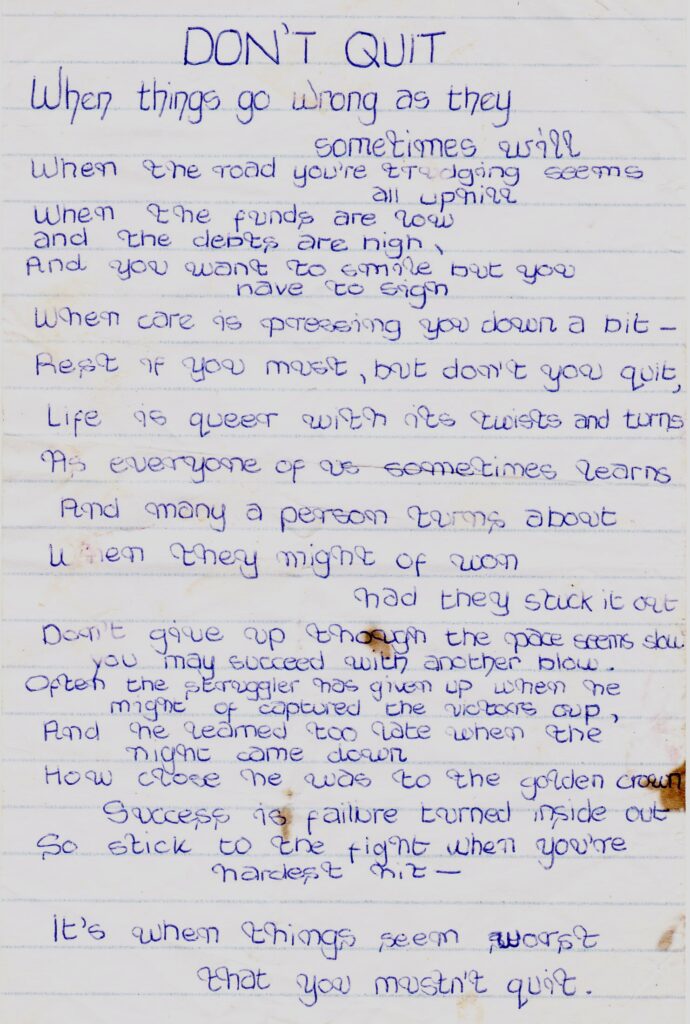 DON'T QUIT
When things go wrong as they
sometimes will
When the road you're trudging seems
all uphill
When the funds are low
and the debts are high,
And you want to smile but you
have to sigh
When care is pressing you down a bit —
Rest if you must, but don't you quit,
Life is queer with its twists and turns
As everyone of us sometimes learns
And many a person turns about
When they might of won
had they stuck it out
Don't give up though the pace seems slow
you may succeed with another blow.
Often the struggler has given up when he
might of captured the victors cup,
And he learned too late when the
night came down
How close he was to the golden crown
Success is failure turned inside out
So stick to the fight when you're
hardest hit —
It's when things seem worst
that you mustn't quit.